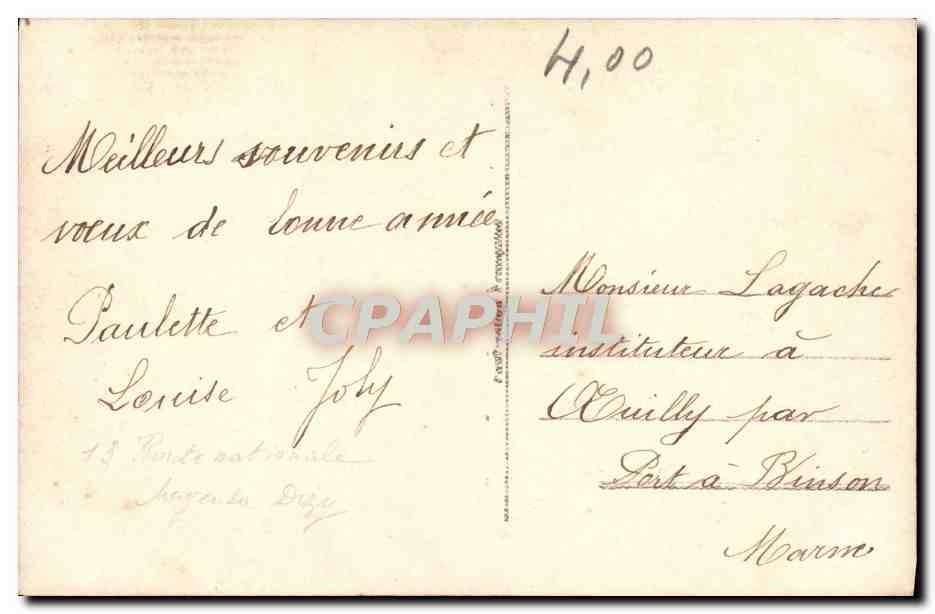 4,00
Meilleurs souvenirs et
voeux de bonne année
Paulette et
Louise Joly
13 Route nationale
Magenta Dizy
Monsieur Lagache
instituteur à
Œuilly par
Port à Binson
Marne
CPAPHIL